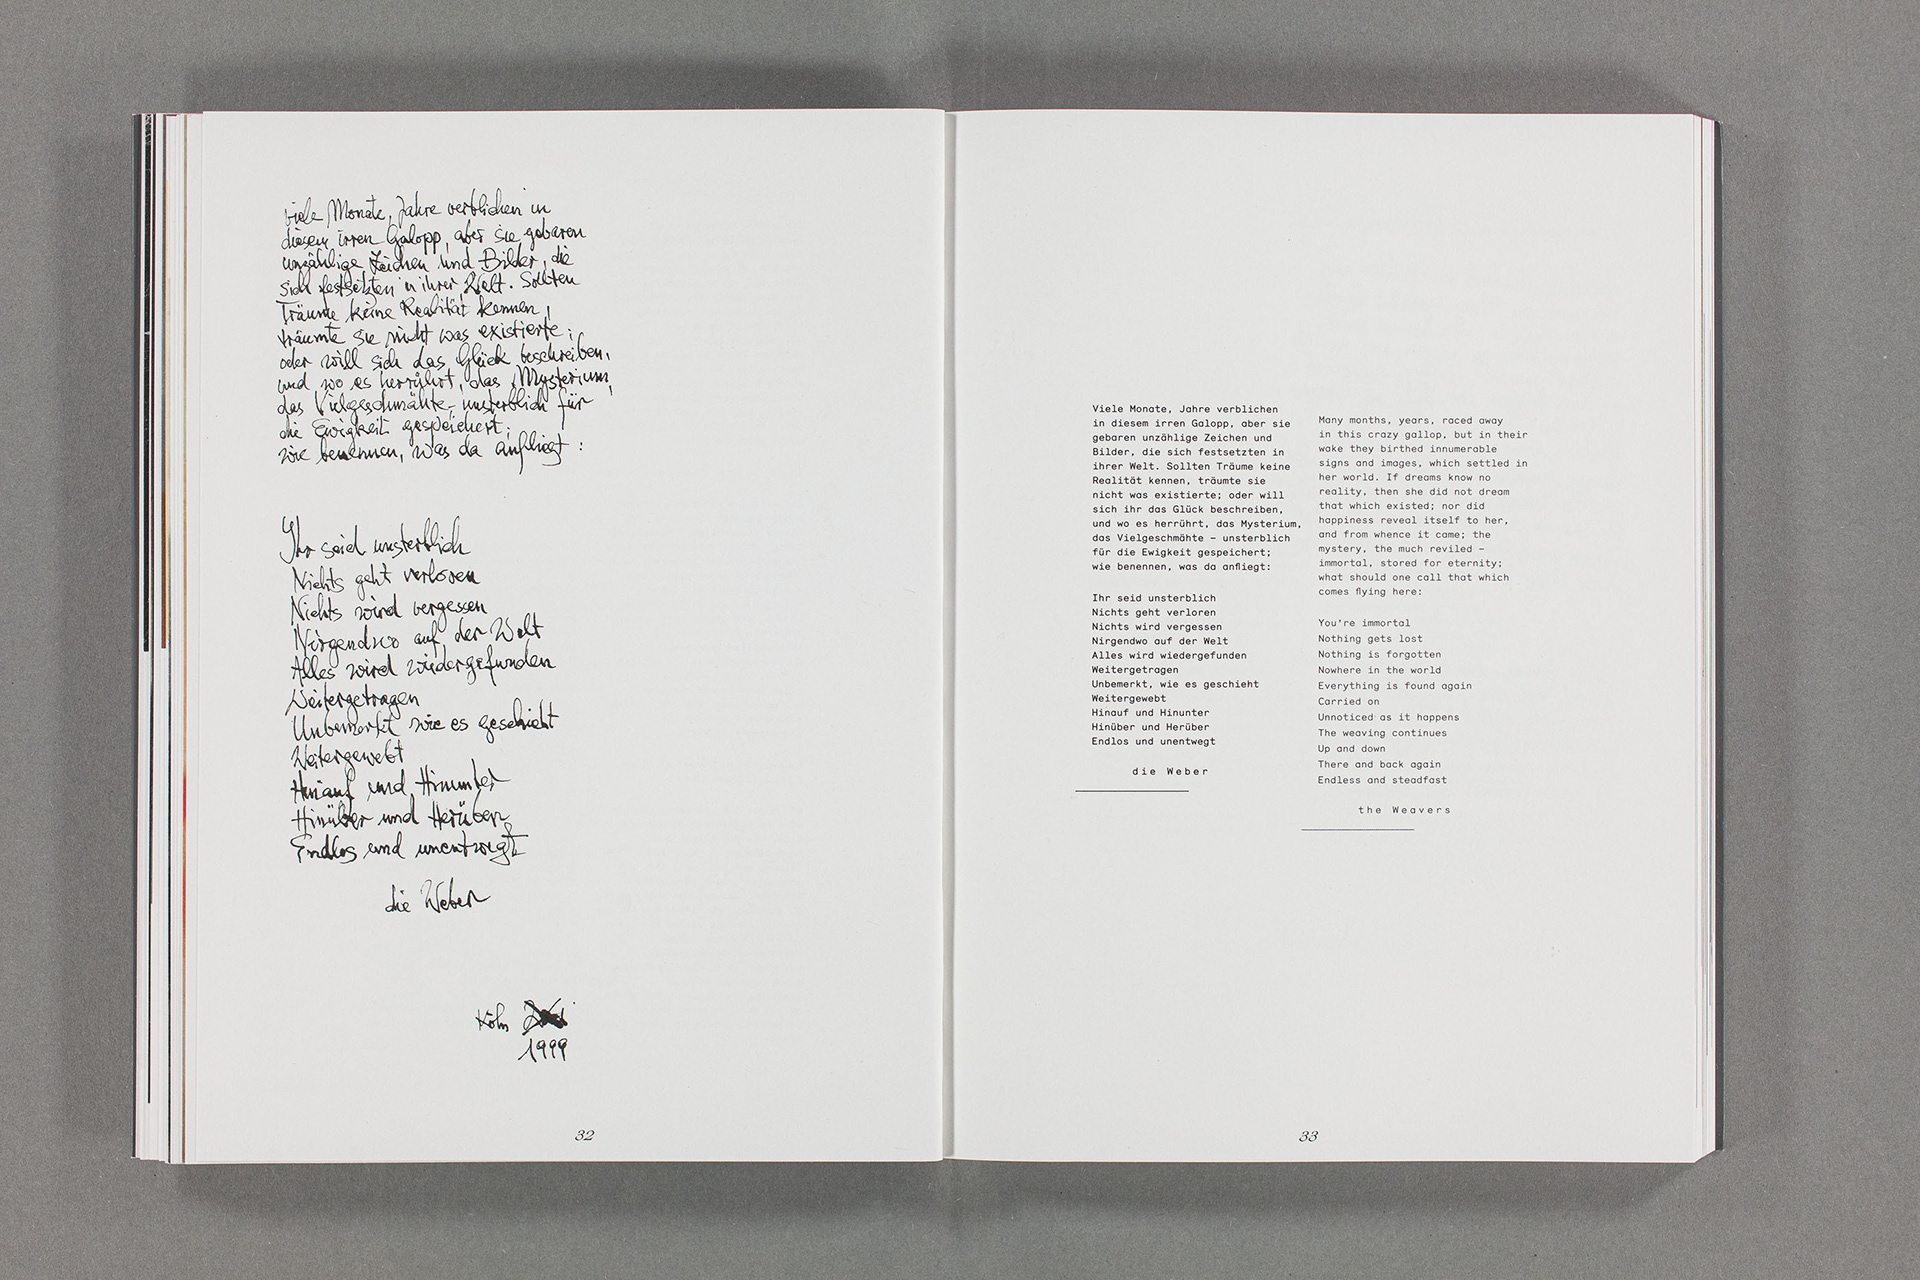 viele Monate, Jahre verblichen in
diesem irren Galopp, aber sie gebaren
unzählige Zeichen und Bilder, die
sich festsetzten in ihrer Welt. Sollten
Träume keine Realität kennen,
träumte sie nicht was existierte;
oder will sich das Glück beschreiben,
und wo es herrührt, das Mysterium,
das Vielgeschmähte – unsterblich für
die Ewigkeit gespeichert;
wie benennen, was da anfliegt:
Ihr seid unsterblich
Nichts geht verloren
Nichts wird vergessen
Nirgendwo auf der Welt
Alles wird wiedergefunden
Weitergetragen
Unbemerkt wie es geschieht
Weitergewebt
Hinauf und Hinunter
Hinüber und Herüber
Endlos und unentwegt
die Weber
Köln
1999
32
Viele Monate, Jahre verblichen
in diesem irren Galopp, aber sie
gebaren unzählige Zeichen und
Bilder, die sich festsetzten in
ihrer Welt. Sollten Träume keine
Realität kennen, träumte sie
nicht was existierte; oder will
sich ihr das Glück beschreiben,
und wo es herrührt, das Mysterium,
das Vielgeschmähte – unsterblich
für die Ewigkeit gespeichert;
wie benennen, was da anfliegt:
Ihr seid unsterblich
Nichts geht verloren
Nichts wird vergessen
Nirgendwo auf der Welt
Alles wird wiedergefunden
Weitergetragen
Unbemerkt, wie es geschieht
Weitergewebt
Hinauf und Hinunter
Hinüber und Herüber
Endlos und unentwegt
die Weber
Many months, years, raced away
in this crazy gallop, but in their
wake they birthed innumerable
signs and images, which settled in
her world. If dreams know no
reality, then she did not dream
that which existed; nor did
happiness reveal itself to her,
and from whence it came; the
mystery, the much reviled –
immortal, stored for eternity;
what should one call that which
comes flying here:
You're immortal
Nothing gets lost
Nothing is forgotten
Nowhere in the world
Everything is found again
Carried on
Unnoticed as it happens
The weaving continues
Up and down
There and back again
Endless and steadfast
the Weavers
33